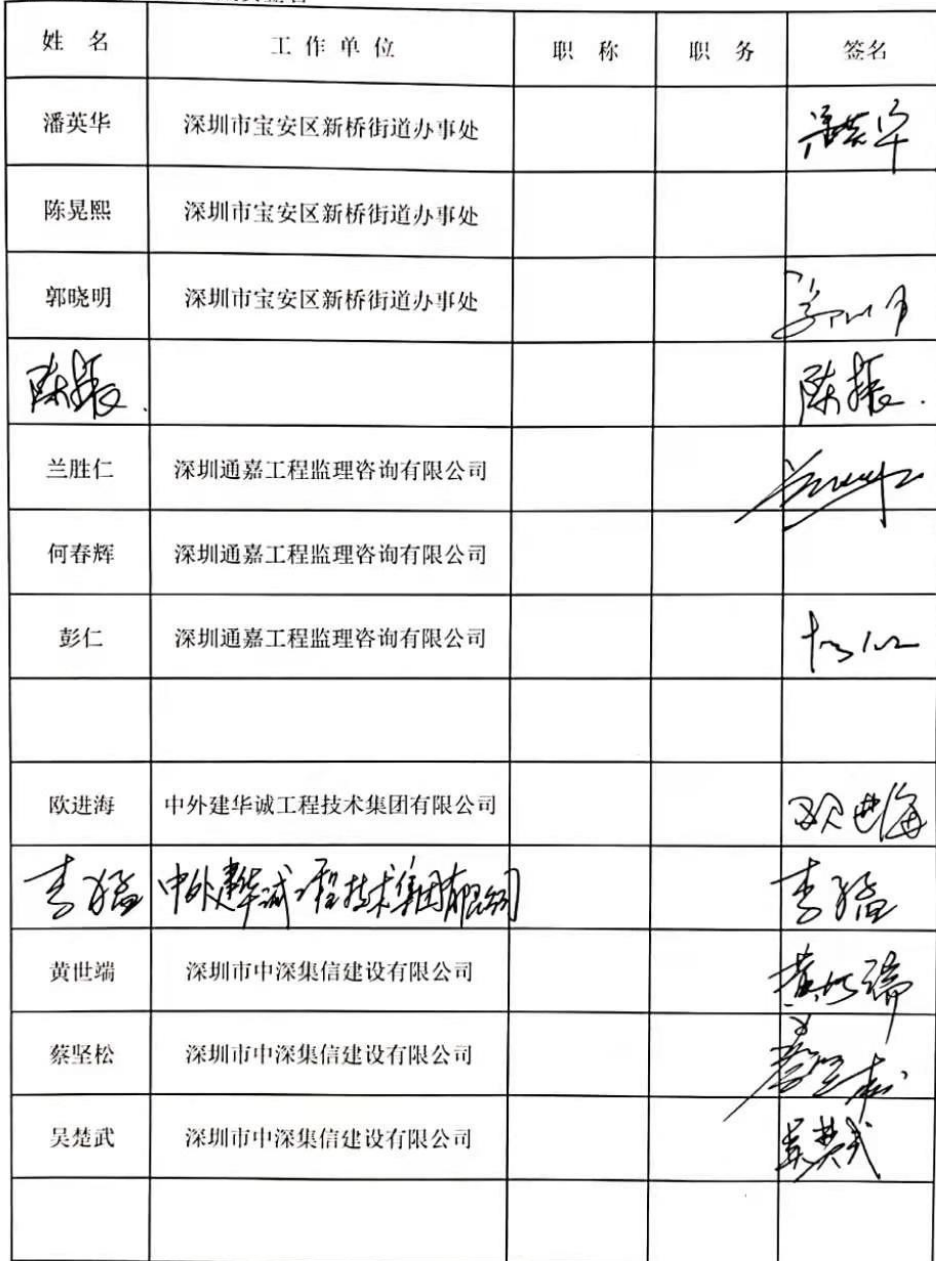 姓 名 工 作 单 位 职 称 职 务 签名
潘英华 深圳市宝安区新桥街道办事处 潘英华
陈晃熙 深圳市宝安区新桥街道办事处
郭晓明 深圳市宝安区新桥街道办事处
陈振 陈振
兰胜仁 深圳通嘉工程监理咨询有限公司
何春辉 深圳通嘉工程监理咨询有限公司
彭仁 深圳通嘉工程监理咨询有限公司
欧进海 中外建华诚工程技术集团有限公司 欧进海
李猛 中外建华诚工程技术集团有限公司 李猛
黄世端 深圳市中深集信建设有限公司 黄世端
蔡坚松 深圳市中深集信建设有限公司 蔡坚松
吴楚武 深圳市中深集信建设有限公司 吴楚武